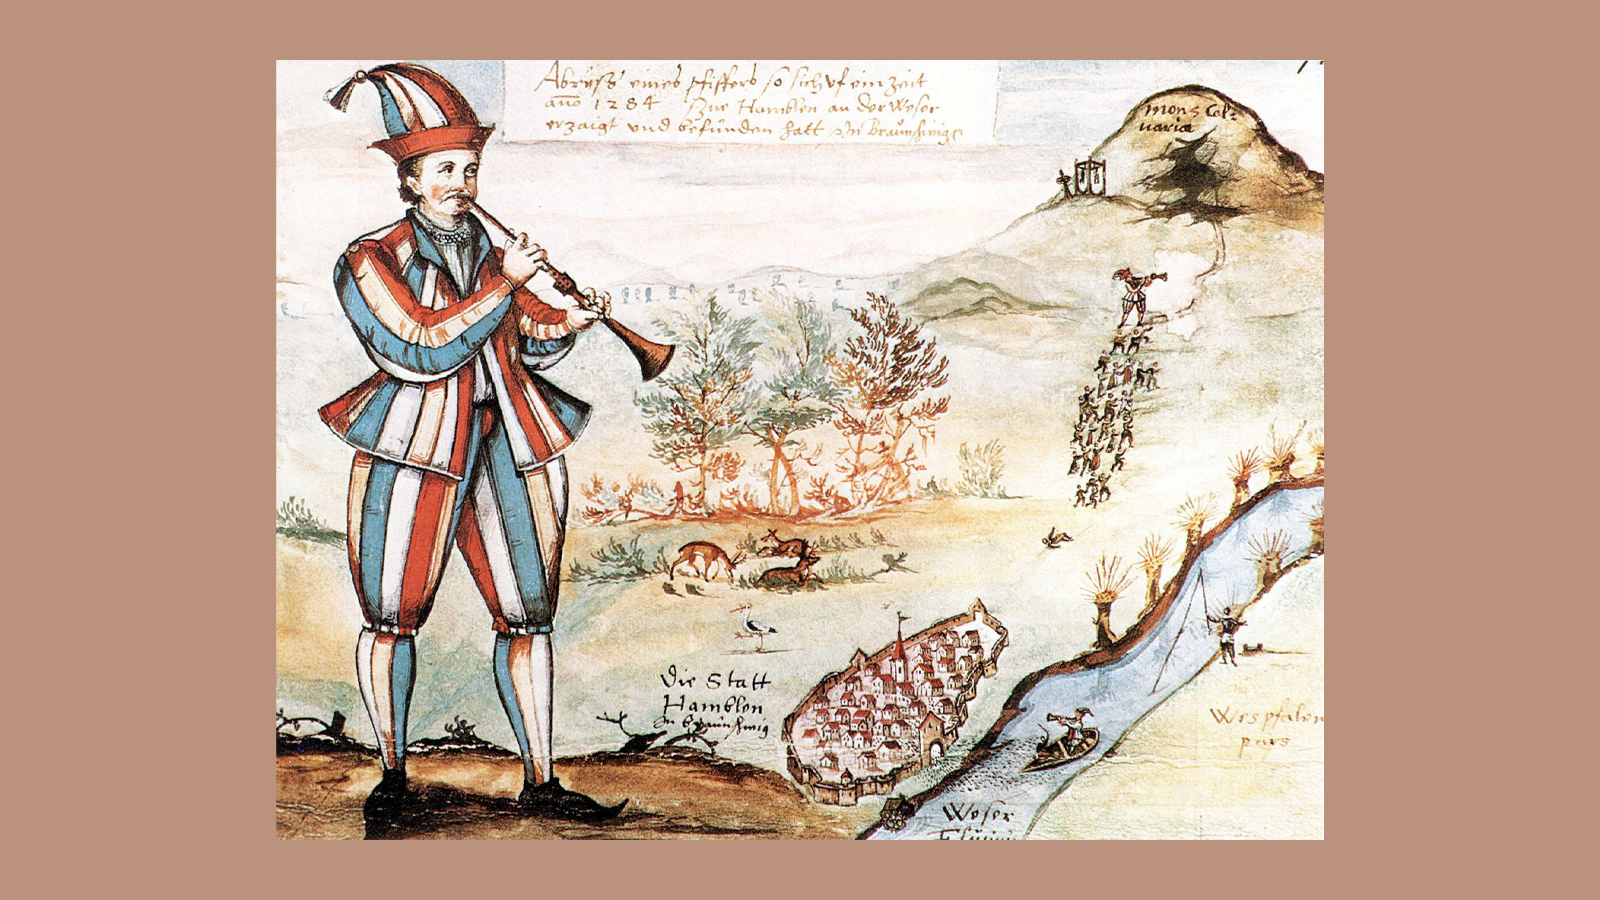 Abryss eines pfiffers so sich uf ein Zeit
año 1284 Zue Hamblen an der Weser
erzaigt und befunden hatt In Braunshwig
Mons Cal-
varia
Die Statt
Hamblen
In braunshwig
Wespfalen
pars
Weser
Fluuius